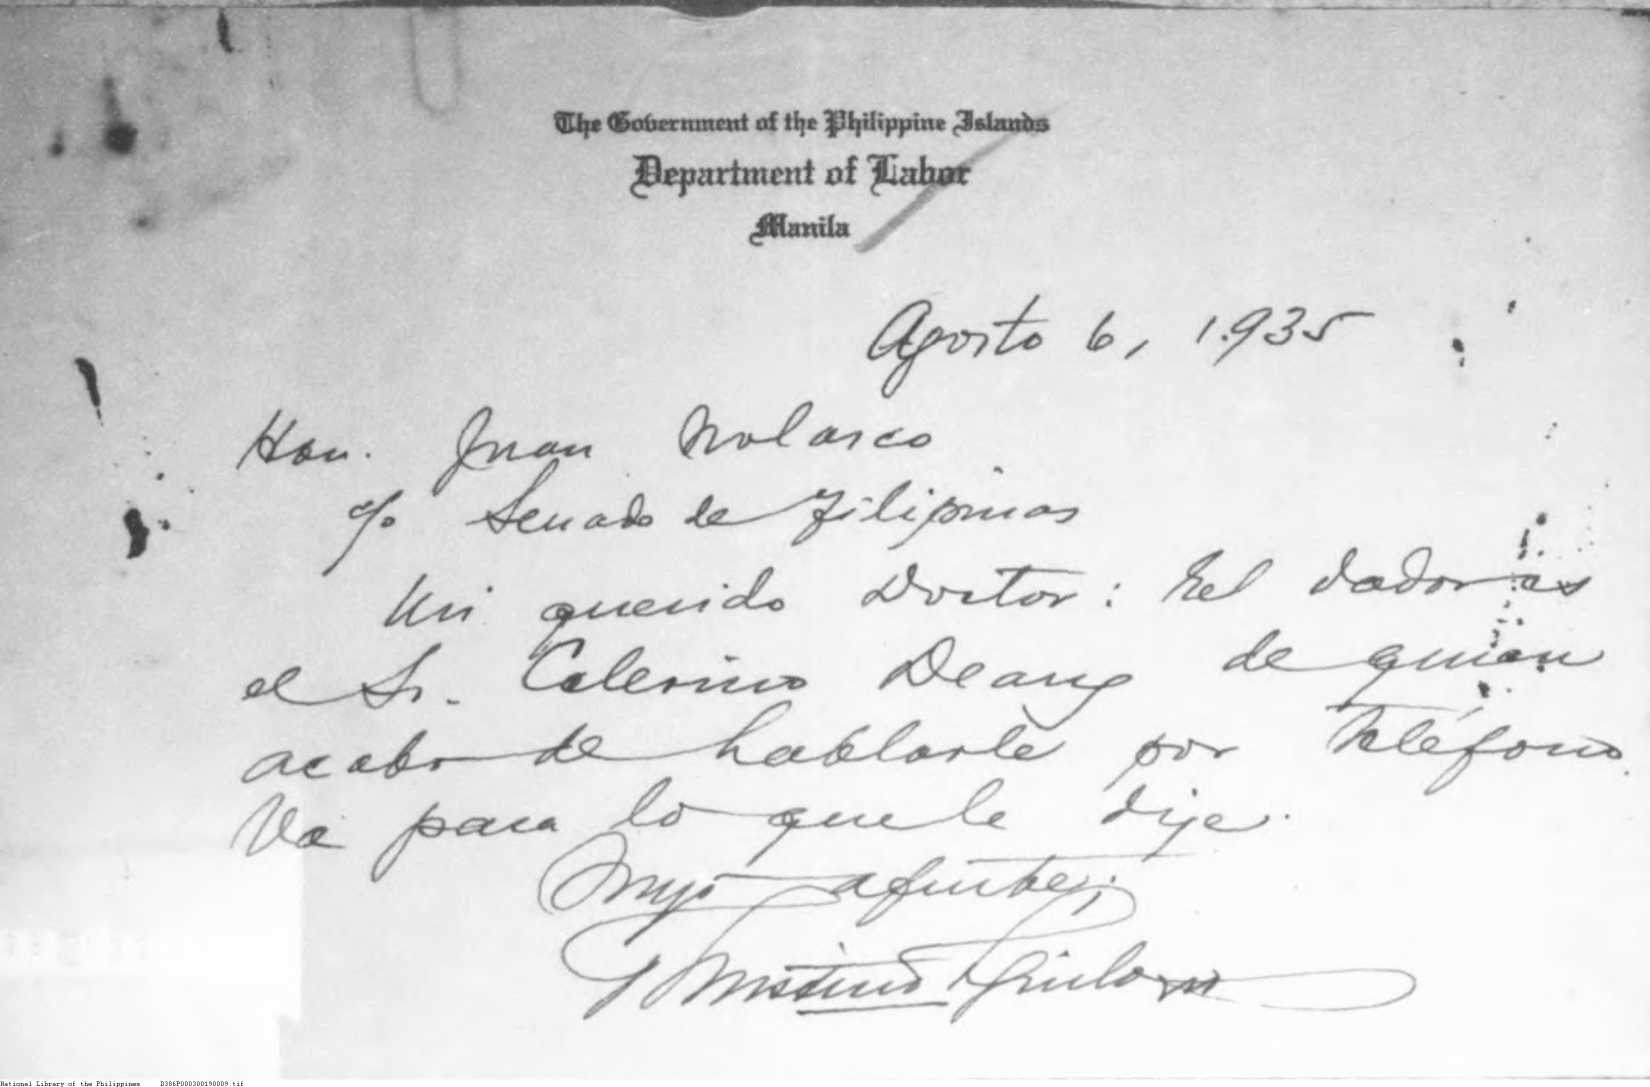 The Government of the Philippine Islands
Department of Labor
Manila
Agosto 6, 1935
Hon. Juan Nolasco
c/o Senado de Filipinas
Mi querido Doctor: El dador es
el Sr. Celerino Deang de quien
acabo de hablarle por teléfono.
Va para lo que le dije.
Suyo afmte.,
National Library of the Philippines D386P000300190009.tif